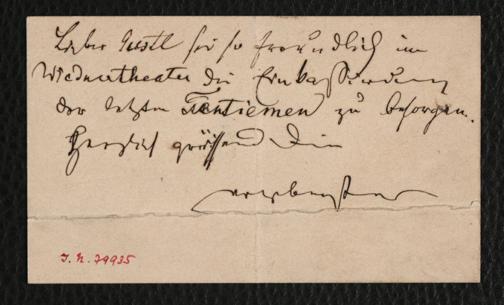 Lieber Gustl sei so freundlich im
Wiednertheater die Einkassierung
der letzten Tantiemen zu besorgen.
Herzlich grüssend Dein
J. N. 79935